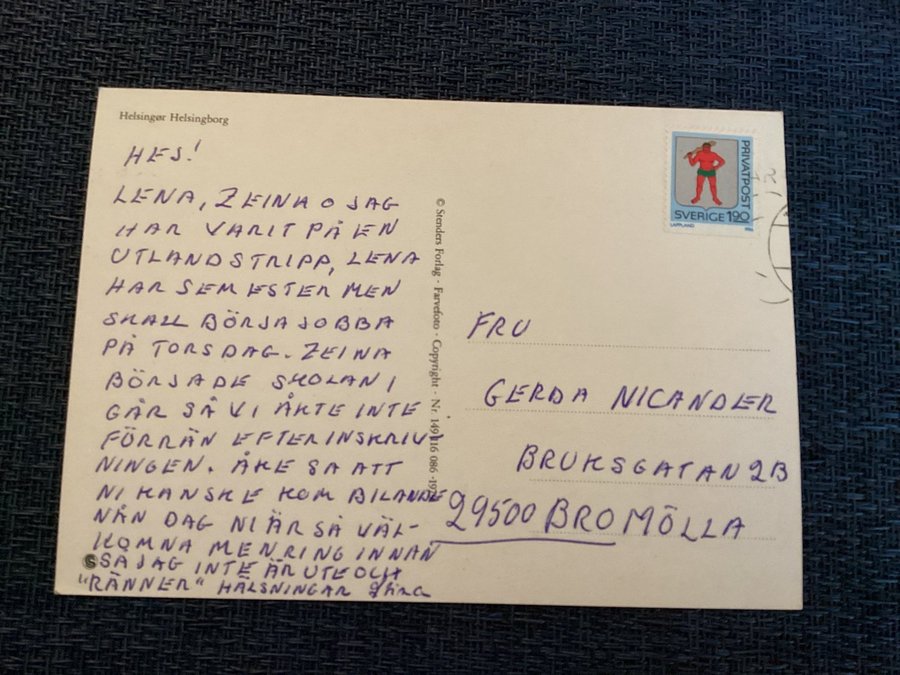 Helsingør Helsingborg
HEJ!
LENA, ZEINA O JAG
HAR VARIT PÅ EN
UTLANDSTRIPP, LENA
HAR SEMESTER MEN
SKALL BÖRJA JOBBA
PÅ TORSDAG. ZEINA
BÖRJADE SKOLAN I
GÅR SÅ VI ÅKTE INTE
FÖRRÄN EFTER INSKRIV
NINGEN. ÅKE SA ATT
NI KANSKE KOM BILANDE
NÅN DAG NI ÄR SÅ VÄL-
KOMNA MEN RING INNAN
SÅ JAG INTE ÄR UTE OCH
"RÄNNER" HÄLSNINGAR
© Stenders Forlag - Farvefoto - Copyright - Nr. 149 116 086
PRIVATPOST
SVERIGE 1.90
LAPPLAND
FRU
GERDA NICANDER
BRUKSGATAN 2B
29500 BROMÖLLA